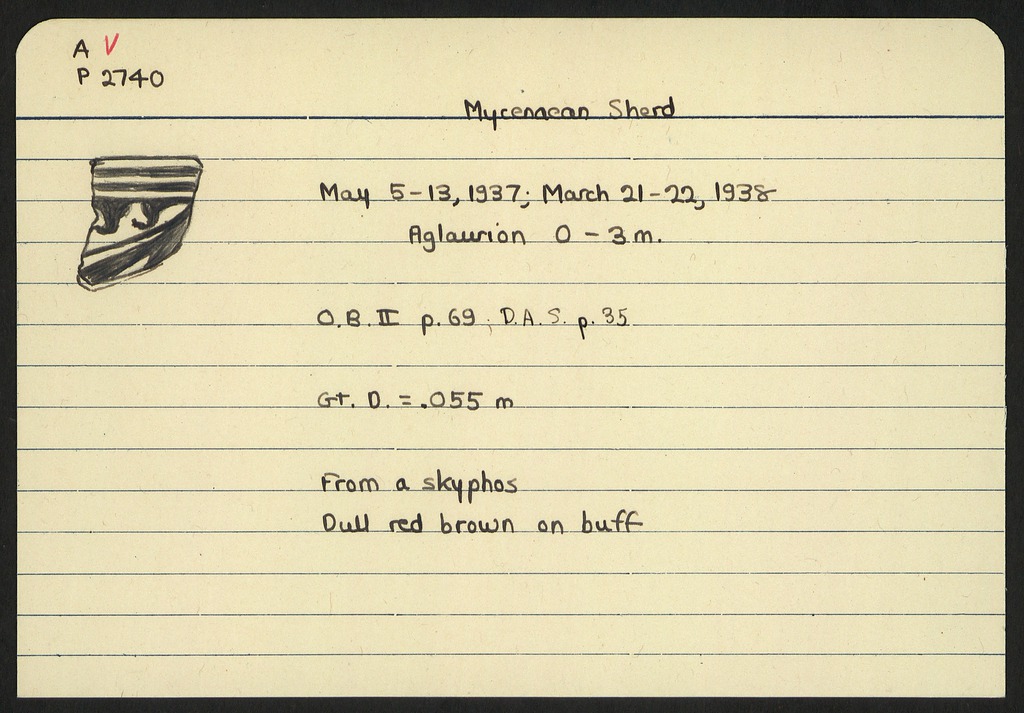 A V
P 2740
Mycenaean Sherd
May 5-13, 1937; March 21-22, 1938
Aglaurion 0 - 3 m.
O.B. II p. 69 ; D.A.S. p. 35
Gt. D. = .055 m
From a skyphos
Dull red brown on buff